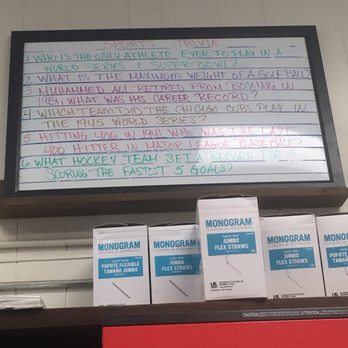 SPORTS TRIVIA
1. WHO IS THE ONLY ATHLETE EVER TO PLAY IN A
WORLD SERIES & SUPER BOWL?
2. WHAT IS THE MAXIMUM WEIGHT OF A GOLF BALL?
3. MUHAMMED ALI RETIRED FROM BOXING IN
1981, WHAT WAS HIS CAREER RECORD?
4. WHICH TEAM DID THE CHICAGO CUBS PLAY IN
THE 1945 WORLD SERIES?
5. HITTING .406 IN 1941 WHO WAS THE LAST
400 HITTER IN MAJOR LEAGUE BASEBALL?
6. WHAT HOCKEY TEAM SET A RECORD FOR
SCORING THE FASTEST 5 GOALS?
MONOGRAM
POPOTE FLEXIBLE
TAMAÑO JUMBO
MONOGRAM
JUMBO
FLEX STRAWS
MONOGRAM
JUMBO
FLEX STRAWS
MONOGRAM
JUMBO
FLEX STRAWS
MONOGRAM
JUMBO
FLEX STRAWS
CAUTION